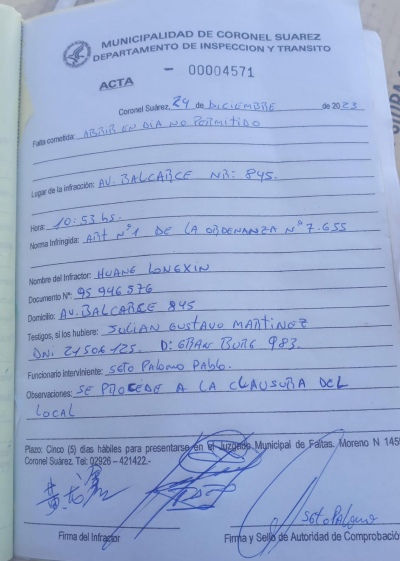 MUNICIPALIDAD DE CORONEL SUAREZ
DEPARTAMENTO DE INSPECCION Y TRANSITO
ACTA
- 00004571
Coronel Suárez, 24 de DICIEMBRE de 2023
Falta cometida: ABRIR EN DIA NO PERMITIDO
Lugar de la infracción: AV. BALCARCE NR: 845.
Hora: 10:53 hs.
Norma Infringida: ART Nº1 DE LA ORDENANZA Nº 7.655
Nombre del Infractor: HUANG LONGXIN
Documento Nº: 95 946 576
Domicilio: AV. BALCARCE 845
Testigos, si los hubiere: JULIAN GUSTAVO MARTINEZ
DNI: 21506125. D: GRAN BURG 983.
Funcionario Interviniente: Soto Palomo Pablo.
Observaciones: SE PROCEDE A LA CLAUSURA DEL
LOCAL
Plazo: Cinco (5) días hábiles para presentarse en el Juzgado Municipal de Faltas. Moreno N 145
Coronel Suárez. Tel: 02926 - 421422.-
Soto Palomo
Firma del Infractor
Firma y Sello de Autoridad de Comprobación